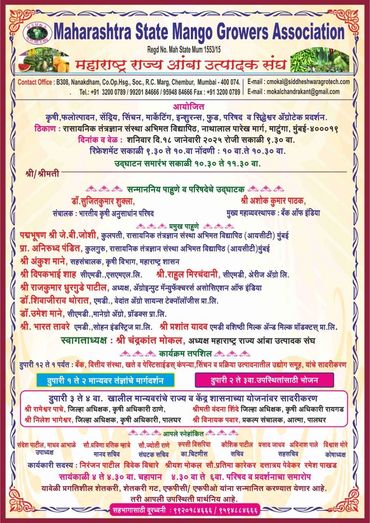 Maharashtra State Mango Growers Association
Regd No. Mah State Mum 1553/15
महाराष्ट्र राज्य आंबा उत्पादक संघ
Contact Office : B308, Nanakdham, Co.Op.Hsg., Soc., R.C. Marg, Chembur, Mumbai - 400 074,
Tel.: +91 3200 0789 / 99201 84666 / 95948 84666 Fax : +91 3200 0789
E-mail : cmokal@siddheshwaragrotech.com
E-mail : mokalchandrakant@gmail.com
आयोजित
कृषी,फलोत्पादन, सेंद्रिय, सिंचन, मार्केटिंग, इन्शुरन्स, फुड, परिषद व सिद्धेश्वर ॲग्रोटेक प्रदर्शन.
ठिकाण : रासायनिक तंत्रज्ञान संस्था अभिमत विद्यापिठ, नाथालाल पारेख मार्ग, माटुंगा, मुंबई-४०००१९
दिनांक व वेळ : शनिवार दि.१८ जानेवारी २०२५ रोजी सकाळी ९.३० वा.
रिफ्रेशमेंट सकाळी ९.३० ते १०.वा नोंदणी : १० वा.ते १०.३० वा.
उद्घाटन समारंभ सकाळी १०.३० ते ११.३० वा.
श्री/श्रीमती
सन्माननिय पाहुणे व परिषदेचे उद्घाटक
डॉ.सुजितकुमार शुक्ला, श्री अशोक कुमार पाठक,
संचालक : भारतीय कृषी अनुसंधान परिषद मुख्य महाव्यवस्थापक : बँक ऑफ इंडिया
प्रमुख पाहुणे
पद्मभूषण श्री जे.बी.जोशी, कुलपती, रासायनिक तंत्रज्ञान संस्था अभिमत विद्यापिठ (आयसीटी) मुंबई
प्रा. अनिरुध्द पंडित, कुलगुरू, रासायनिक तंत्रज्ञान संस्था अभिमत विद्यापिठ (आयसीटी) मुंबई
श्री अंकुश माने, सहसंचालक, कृषि विभाग, महाराष्ट्र शासन
श्री विपकभाई शाह सीएमडी..एसएमएल.लि. श्री.राहुल मिरचंदानी, सीएमडी, अेरीज अॅग्रो लि.
श्री राजकुमार धुरगुडे पाटील, अध्यक्ष, ॲग्रोइन्पुट मॅन्युफॅक्चरर्स असोसिएशन ऑफ इंडिया
डॉ.शिवाजीराव थोरात, एमडी., वेदांत अॅग्रो सायन्स टेक्नॉलॉजीस प्रा.लि.
डॉ.उमेश माने, सीएमडी..मानेग्रो अॅग्रो, प्रॉडक्टस प्रा.लि.
श्री. भारत तावरे एमडी..सोहन इंडस्ट्रिज प्रा.लि. श्री प्रशांत यादव एमडी वशिष्ठी मिल्क ॲन्ड मिल्क प्रॉडक्टस् प्रा.लि.
स्वागताध्यक्ष : श्री चंद्रकांत मोकल, अध्यक्ष महाराष्ट्र राज्य आंबा उत्पादक संघ
कार्यक्रम तपशिल
दुपारी १२ ते १ पर्यंत : बँक, वित्तीय संस्था, खते व पेस्टिसाईडस् कंपन्या,सिंचन व प्रक्रिया उत्पादनातील उद्योग समूह, यांचे सादरीकरण
दुपारी १ ते २ मान्यवर तंज्ञांचे मार्गदर्शन दुपारी २ ते ३वा.उपस्थितांसाठी भोजन
दुपारी ३ ते ४ वा. खालील मान्यवरांचे राज्य व केंद्र शासनाच्या योजनांवर सादरीकरण
श्री रामेश्वर पाचे, जिल्हा अधिक्षक, कृषि अधिकारी ठाणे, श्रीमती वंदना शिंदे जिल्हा अधिक्षक, कृषि अधिकारी रायगड
श्री निलेश भागेश्वर, जिल्हा अधिक्षक, कृषि अधिकारी, पालघर श्री विनायक पवार, प्रकल्प संचालक, आत्मा, पालघर
आपले स्नेहांकित
संदेश पाटील, माधव आभाळे सौ.प्रमिला मल्लिक म्हात्रे सौ.ज्योती राणे रुपसी विसरिया कौशिक पाटील प्रसाद जाधव अविनाश पाले विश्वास मोरे
उपाध्यक्ष मानद सचिव संघटक सचिव का.चिटणीस सचिव सचिव सचिव कोषाध्यक्ष
कार्यकारी सदस्य : निरंजन पाटील विवेक विचारे श्रीयश मोकल सौ.प्रतिमा कारेकर दत्तात्रय पेवेकर रमेश पाखड
सायंकाळी ४ ते ४.३० चहापान ४.३० वा ते ६वा. परिषद व प्रदर्शनाचा समारोप
यावेळी प्रगतिशील शेतकरी, शेतकरी गट, एफपीसी/ एफपीओ यांना सन्मानित करण्यात येणार आहे.
तरी आपली उपस्थिती प्रार्थनिय आहे.
सहभागासाठी दूरध्वनी : ९९२०१८४६६६ / ९५९४८८४६६६